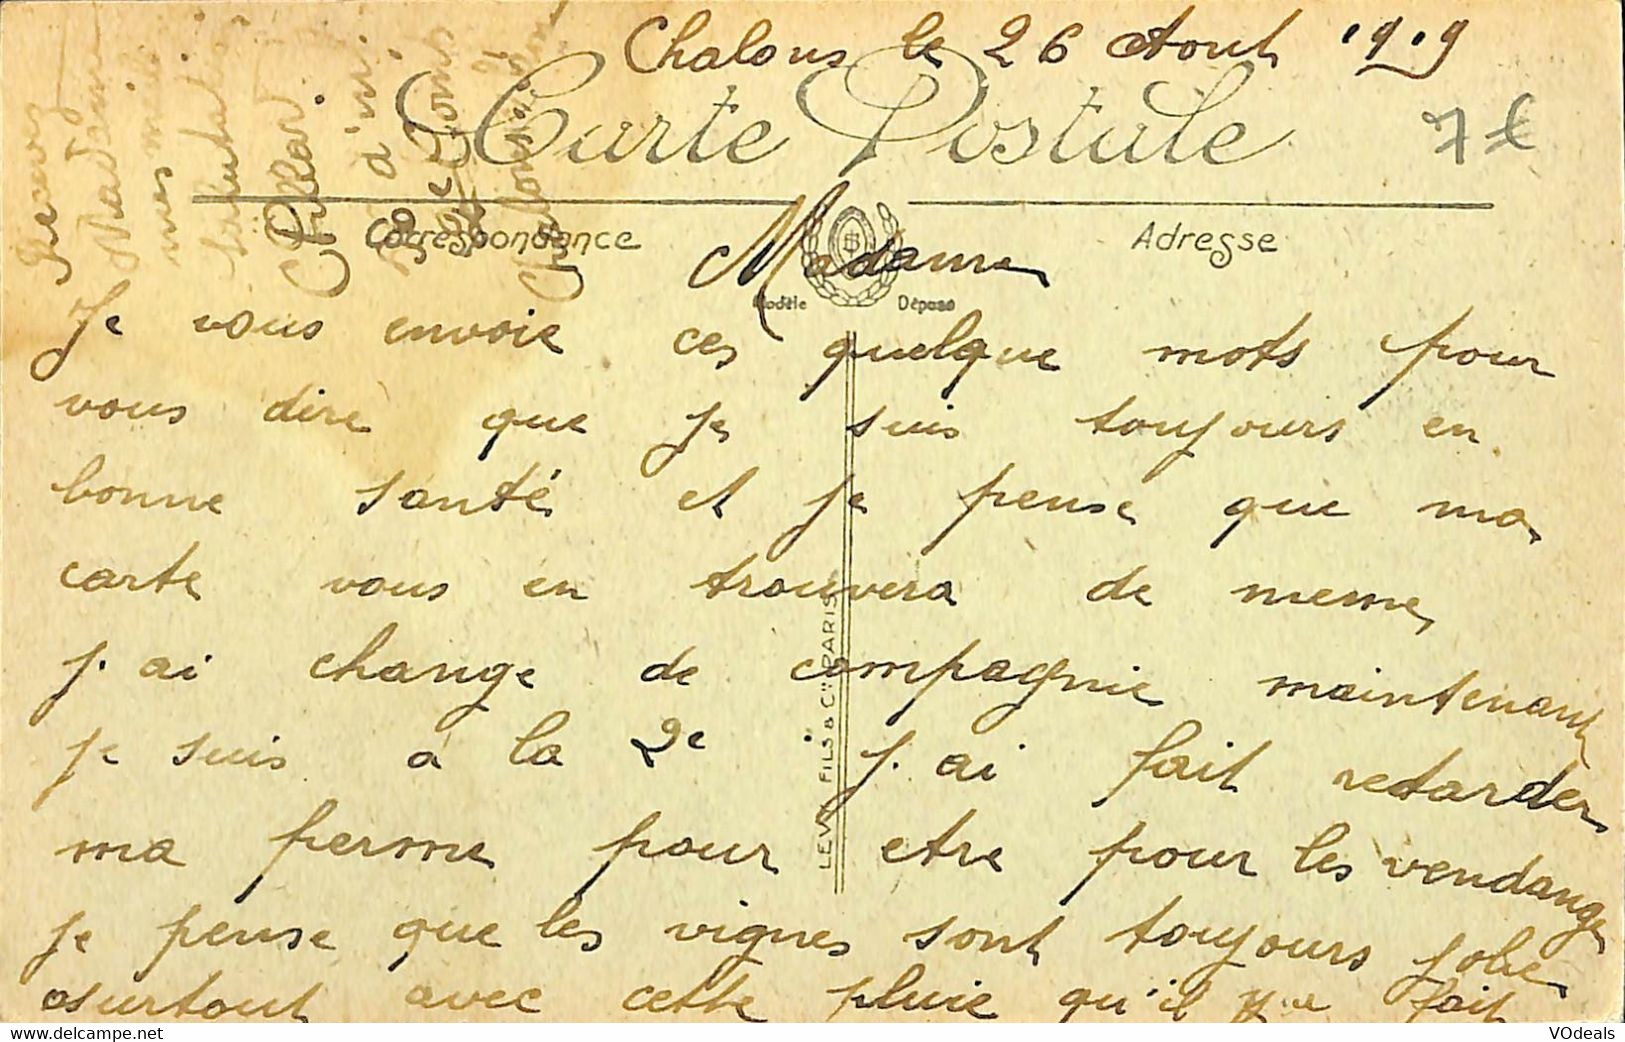 Chalons le 26 Aout 1919
7 £
Carte Postale
Correspondance
Adresse
Madame
Modèle Déposé
Je vous envoie ces quelque mots pour
vous dire que je suis toujours en
bonne santé et je pense que ma
carte vous en trouvera de meme
j. ai change de compagnie maintenant
je suis à la 2e j. ai fait retarder
ma perme pour etre pour les vendange
je pense que les vignes sont toujours jolie
surtout avec cette pluie qu'il y a fait
Recevez
Madame
mes
d'un
LEVY FILS & Cie PARIS
Delcampe.net
VOdeals